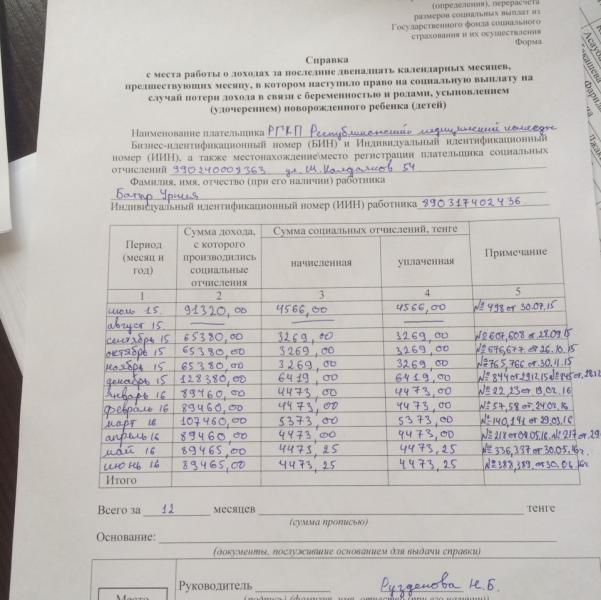 (определения), перерасчета
размеров социальных выплат из
Государственного фонда социального
страхования и их осуществления
Форма
Справка
с места работы о доходах за последние двенадцать календарных месяцев,
предшествующих месяцу, в котором наступило право на социальную выплату на
случай потери дохода в связи с беременностью и родами, усыновлением
(удочерением) новорожденного ребенка (детей)
Наименование плательщика РГКП Республиканский медицинский колледж
Бизнес-идентификационный номер (БИН) и Индивидуальный идентификационный
номер (ИИН), а также местонахождение\место регистрации плательщика социальных
отчислений 990240009363 ул. М. 54
Фамилия, имя, отчество (при его наличии) работника
Батыр
Индивидуальный идентификационный номер (ИИН) работника 890317402436
Период (месяц и год) Сумма дохода, с которого производились социальные отчисления Сумма социальных отчислений, тенге Примечание
начисленная уплаченная
1 2 3 4 5
июль 15. 91320,00 4566,00 4566,00 №498 от 30.07.15
август 15.
сентябрь 15 65380,00 3269,00 3269,00 №607,608 от 28.09.15
октябрь 15 65380,00 3269,00 3269,00 №676,677 от 26.10.15
ноябрь 15 65380,00 3269,00 3269,00 №765,766 от 30.11.15
декабрь 15 128380,00 6419,00 6419,00 №844 от 29.12.15
январь 16 89460,00 4473,00 4473,00 №22,23 от 19.02.16
февраль 16 89460,00 4473,00 4473,00 №57,58 от 24.02.16
март 16 107460,00 5373,00 5373,00 №140,141 от 29.03.16
апрель 16 89460,00 4473,00 4473,00 №218 от 04.05.16. №217 от 29
май 16 89465,00 4473,25 4473,25 №336,337 от 30.05.16г.
июнь 16 89465,00 4473,25 4473,25 №388,389 от 30.06.16г
Итого
Всего за 12 месяцев тенге
(сумма прописью)
Основание:
(документы, послужившие основанием для выдачи справки)
Руководитель Рузденова Н.Б.
Место